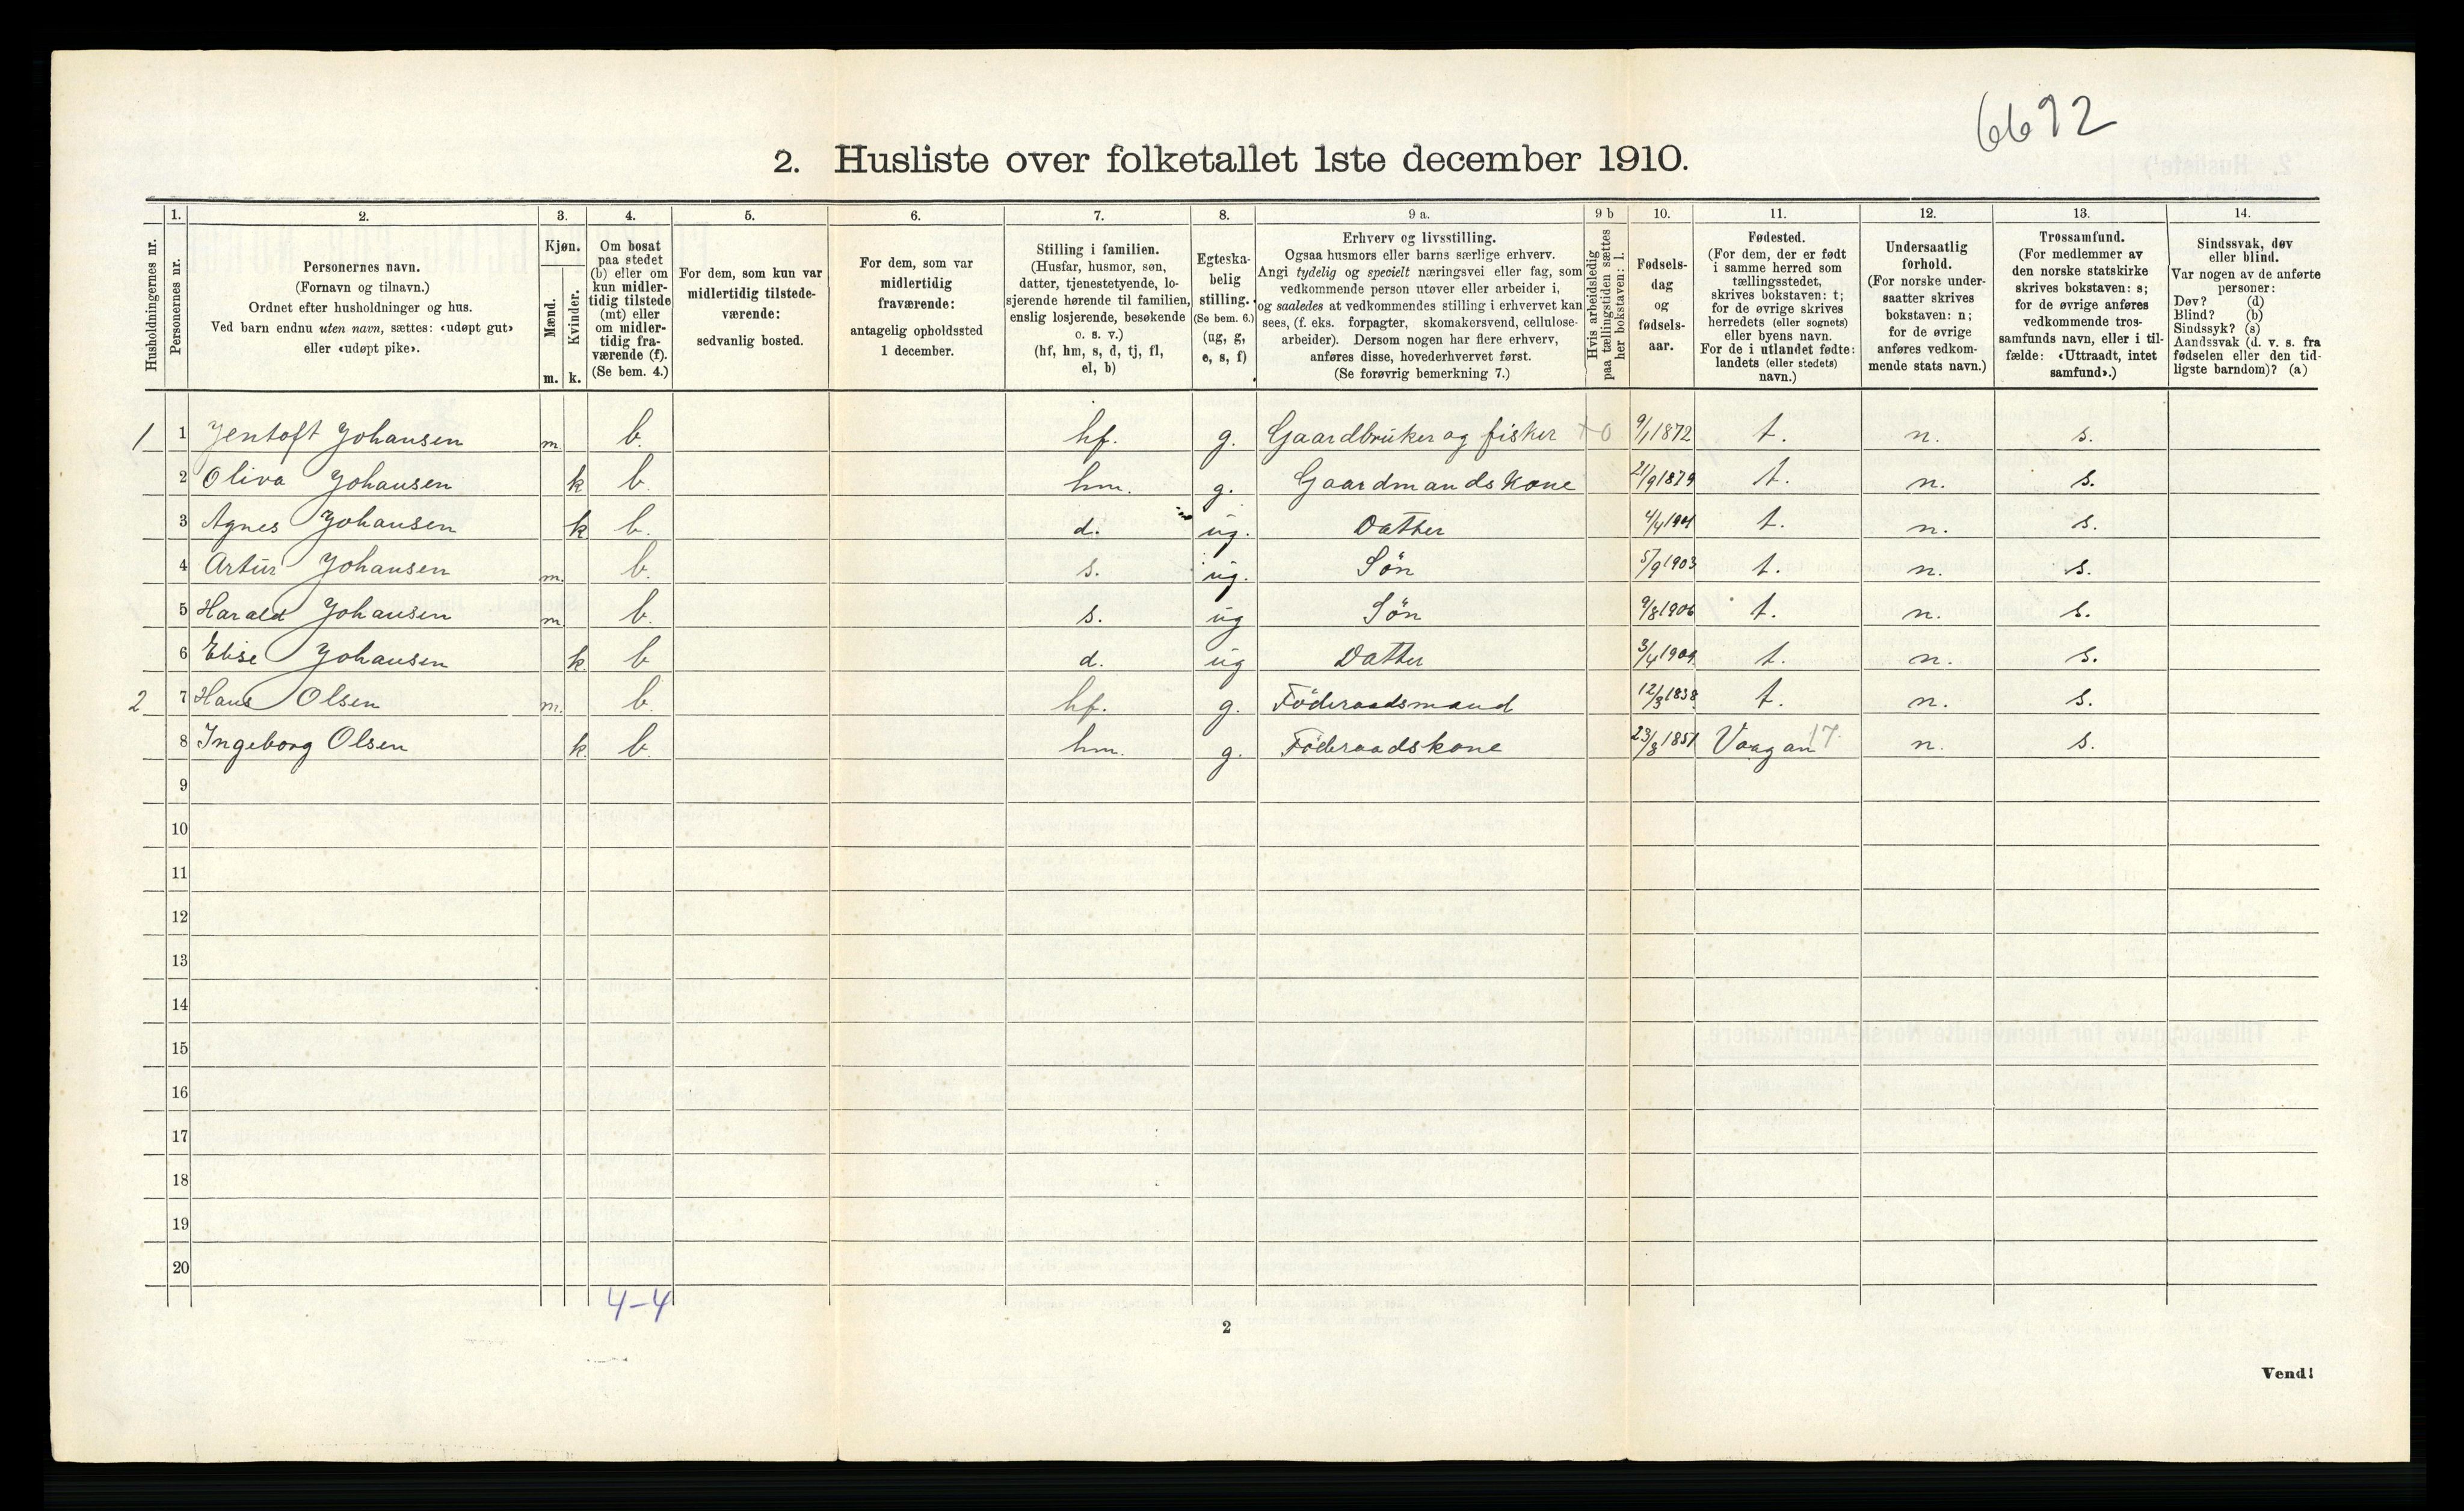 6692
2. Husliste over folketallet 1ste december 1910.
Husholdningernes nr.
1. Personernes nr.
2. Personernes navn. (Fornavn og tilnavn.) Ordnet efter husholdninger og hus. Ved barn endnu uten navn, sættes: «udøpt gut» eller «udøpt pike».
3. Kjøn. Mænd. m. Kvinder. k.
4. Om bosat paa stedet (b) eller om kun midler-tidig tilstede (mt) eller om midler-tidig fra-værende (f). (Se bem. 4.)
5. For dem, som kun var midlertidig tilstede-værende: sedvanlig bosted.
6. For dem, som var midlertidig fraværende: antagelig opholdssted 1 december.
7. Stilling i familien. (Husfar, husmor, søn, datter, tjenestetyende, lo-sjerende hørende til familien, enslig losjerende, besøkende o. s. v.) (hf, hm, s, d, tj, fl, el, b)
8. Egteska-belig stilling. (Se bem. 6.) (ug, g, e, s, f)
9 a. Erhverv og livsstilling. Ogsaa husmors eller barns særlige erhverv. Angi tydelig og specielt næringsvei eller fag, som vedkommende person utøver eller arbeider i, og saaledes at vedkommendes stilling i erhvervet kan sees, (f. eks. forpagter, skomakersvend, cellulose-arbeider). Dersom nogen har flere erhverv, anføres disse, hovederhvervet først. (Se forøvrig bemerkning 7.)
9 b Hvis arbeidsledig paa tællingstiden sættes her bokstaven: l.
10. Fødsels-dag og fødsels-aar.
11. Fødested. (For dem, der er født i samme herred som tællingsstedet, skrives bokstaven: t; for de øvrige skrives herredets (eller sognets) eller byens navn. For de i utlandet fødte: landets (eller stedets) navn.)
12. Undersaatlig forhold. (For norske under-saatter skrives bokstaven: n; for de øvrige anføres vedkom-mende stats navn.)
13. Trossamfund. (For medlemmer av den norske statskirke skrives bokstaven: s; for de øvrige anføres vedkommende tros-samfunds navn, eller i til-fælde: «Uttraadt, intet samfund».)
14. Sindssvak, døv eller blind. Var nogen av de anførte personer: Døv? (d) Blind? (b) Sindssyk? (s) Aandssvak (d. v. s. fra fødselen eller den tid-ligste barndom)? (a)
1 1 Jentoft Johansen m b. hf. g. Gaardbruker og fisker +0 9/1 1872 t. n. s.
2 Oliva Johansen k b. hm. g. Gaardmandskone 21/9 1879 t. n. s.
3 Agnes Johansen k b. d. ug. Datter 4/4 1901 t. n. s.
4 Artur Johansen m. b. s. ug. Søn 5/9 1903 t. n. s.
5 Harald Johansen m b. s. ug Søn 9/8 1906 t. n. s.
6 Elise Johansen k b d. ug Datter 3/4 1909 t. n. s.
2 7 Hans Olsen m. b. hf. g. Föderaadsmand 12/3 1838 t. n. s.
8 Ingeborg Olsen k b. hm. g. Föderaadskone 23/8 1851 Vaagan 17 n. s.
9
10
11
12
13
14
15
16
17
18
19
20
4-4
2
Vend!